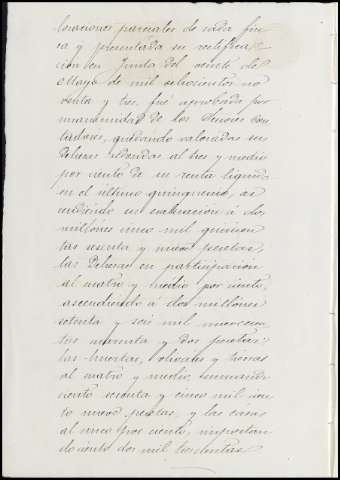 loraciones parciales de cada fin
ca y presentada su rectifica
cion en Junta del veinte de
Mayo de mil ochocientos no
venta y tres, fué aprobada por
unanimidad de los Señores con
tadores, quedando valoradas en
Dehesas redondas al tres y medio
por ciento de su renta líquida
en el último quinquenio, as
cendiendo su evaluacion á dos
millones cinco mil quinien
tas sesenta y nueve pesetas,
las Dehesas en participacion
al cuatro y medio por ciento,
ascendiendo á dos millones
setenta y seis mil novecien
tas noventa y dos pesetas:
las huertas, olivares y tierras
al cuatro y medio, sumando
ciento sesenta y cinco mil cien
to nueve pesetas, y las casas
al cinco por ciento, importan
do ciento dos mil trescientas